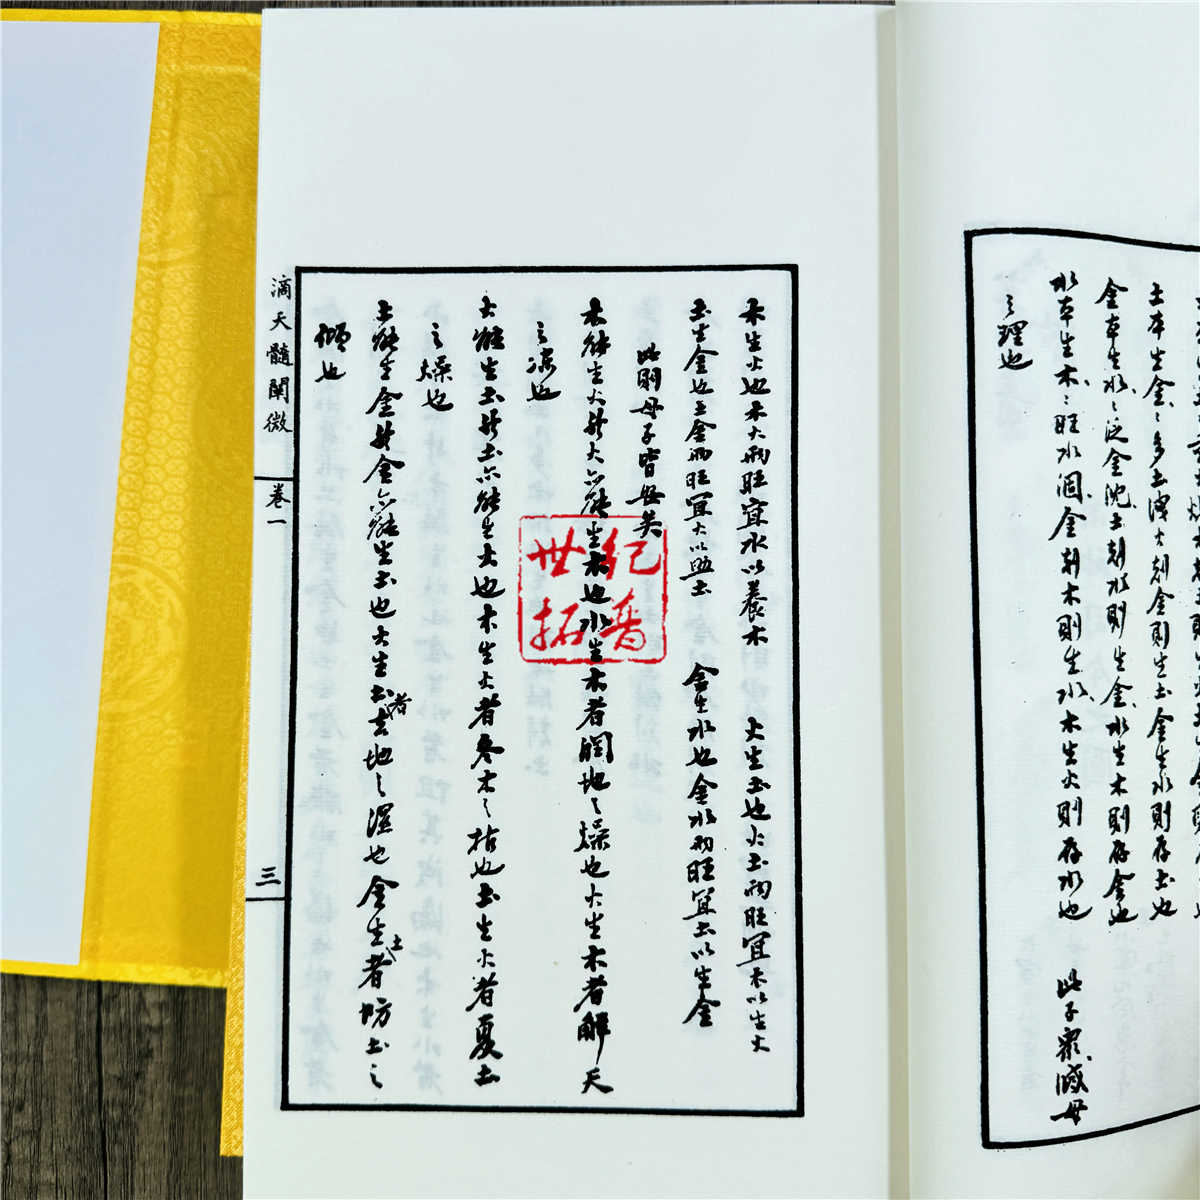 土本生金〻多土洩火剋金則生土金生水則存土也
金本生水〻泛金沈土剋水則生金水生木則存金也
水本生木〻旺水涸金剋木則生水木生火則存水也 此子眾滅母
之理也
木生火也木火兩旺宜水以養木 火生土也火土兩旺宜木以生火
土生金也土金兩旺宜火以助土 金生水也金水兩旺宜土以生金
此則母子皆安矣
木能生火然火亦能生木也水生木者潤地之燥也火生木者解天
之凍也
火能生土然土亦能生火也木生火者冬木之枯也土生火者夏土
之燥也
土能生金然金亦能生土也火生土者去地之濕也金生土者防土之
傾也
滴天髓闡微
卷一
三
世纪
拓普